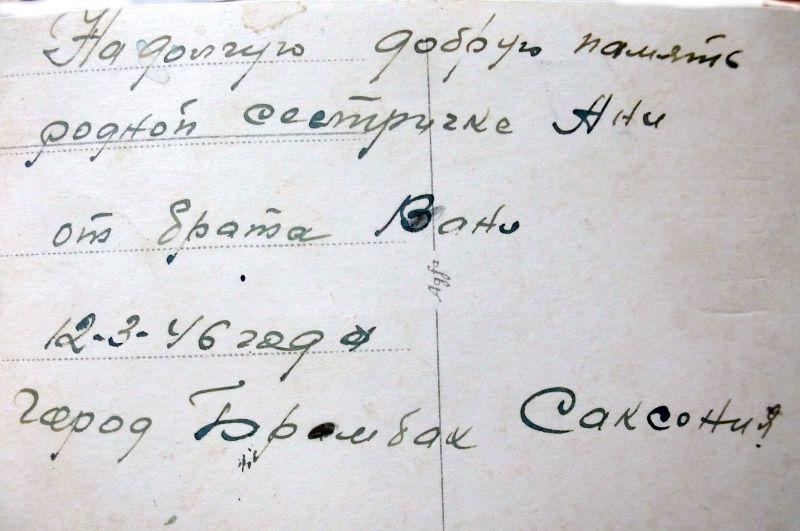 На долгую добрую память
родной сестричке Ани
от брата Вани
12-3-46 года
город Брамбах Саксония